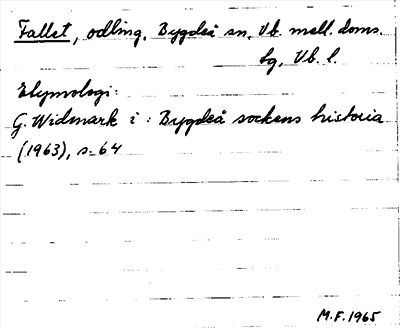 Fallet, odling. Bygdeå sn, Vb. mell. doms.
sg, Vb. l.
Etymologi:
G. Widmark i: Bygdeå sockens historia
(1963), s. 64
M.F. 1965